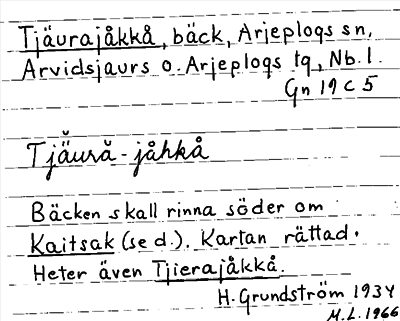 Tjäurajåkkå, bäck, Arjeplogs sn,
Arvidsjaurs o. Arjeplogs tg, Nb. l.
Gn 19 C 5
Tjäŭră-jåhkå
Bäcken skall rinna söder om
Kaitsak (se d.). Kartan rättad.
Heter även Tjierajåkkå.
H. Grundström 1934
M.L. 1966